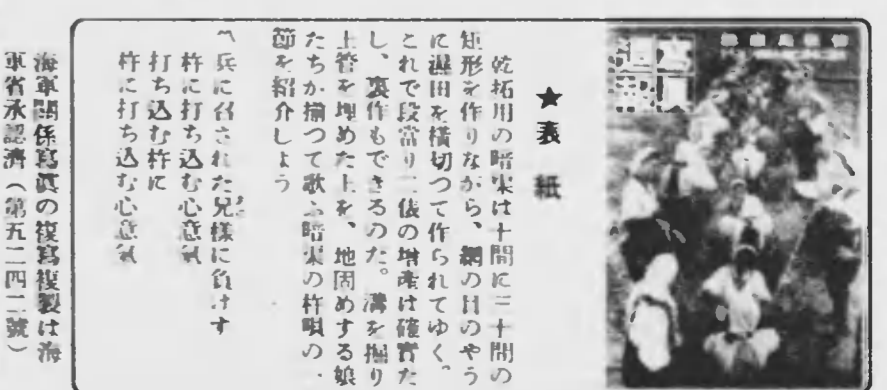 ★表紙
乾拓用の暗渠は十間に三十間の
矩形を作りながら、網の目のやう
に濕田を横切つて作られてゆく。
これで段當り二俵の增產は確實だ
し、裏作もできるのだ。溝を掘り
土管を埋めた上を、地固めする娘
たちが揃つて歌ふ暗渠の杵唄の一
節を紹介しよう
〽兵に召された兄様に負けず
杵に打ち込む心意氣
打ち込む杵に
杵に打ち込む心意氣
海軍關係寫眞の複寫複製は海
軍省承認濟（第五二四二號）